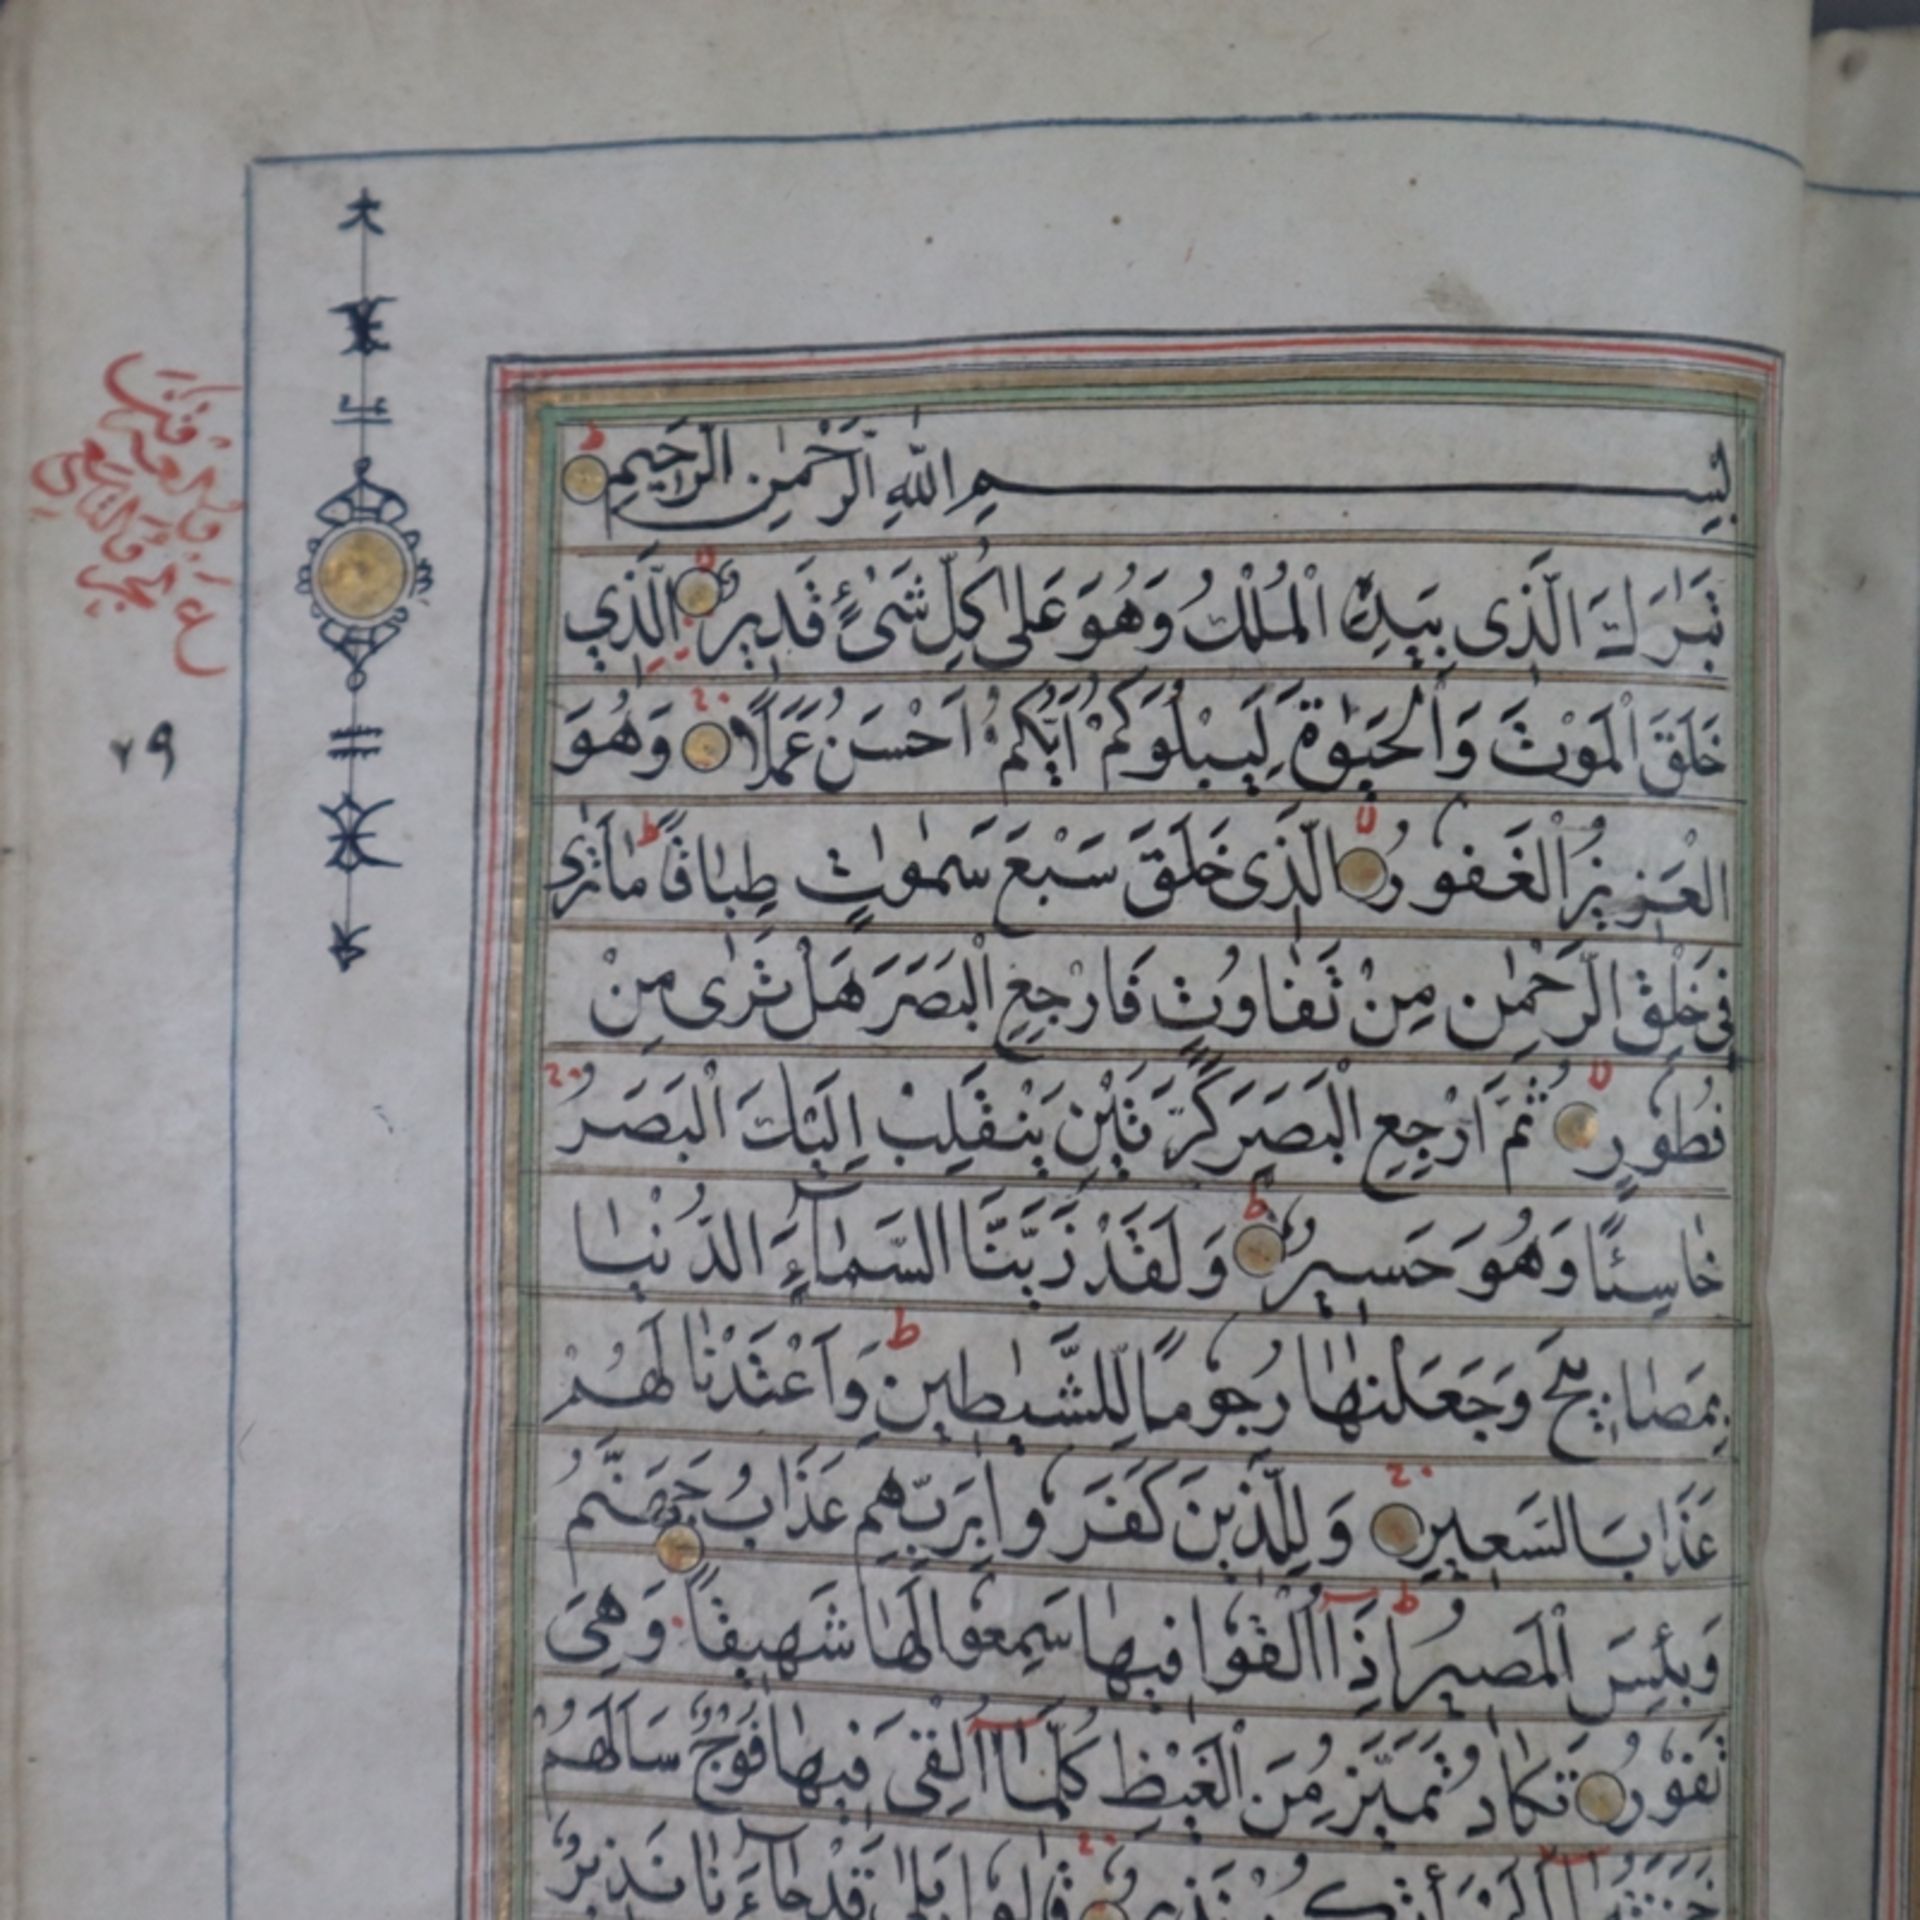 بِسْمِ اللّٰهِ الرَّحْمٰنِ الرَّحِيمِ ط
تَبَرَكَ الَّذِى بِيَدِهِ الْمُلْكُ وَهُوَ عَلٰى كُلِّ شَىْءٍ قَدِيرٌ الَّذِي
خَلَقَ الْمَوْتَ وَالْحَيٰوةَ لِيَبْلُوَكُمْ اَيُّكُمْ اَحْسَنُ عَمَلًا وَهُوَ
الْعَزِيزُ الْغَفُورُ الَّذِى خَلَقَ سَبْعَ سَمٰوٰتٍ طِبٰاقًا ط مٰا تَرٰى
فِى خَلْقِ الرَّحْمٰنِ مِنْ تَفٰاوُتٍ فَارْجِعِ الْبَصَرَ هَلْ تَرٰى مِنْ
فُطُورٍ ثُمَّ ارْجِعِ الْبَصَرَ كَرَّتَيْنِ يَنْقَلِبْ اِلَيْكَ الْبَصَرُ
خٰاسِئًا وَهُوَ حَسِيرٌ ط وَلَقَدْ زَيَّنَّا السَّمٰاءَ الدُّنْيٰا
بِمَصٰابِيحَ وَجَعَلْنٰهٰا رُجُومًا لِلشَّيٰطِينِ ط وَاَعْتَدْنٰا لَهُمْ
عَذَابَ السَّعِيرِ وَلِلَّذِينَ كَفَرُوا بِرَبِّهِمْ عَذَابُ جَهَنَّمَ
وَبِئْسَ الْمَصِيرُ ط اِذَا اُلْقُوا فِيهٰا سَمِعُوا لَهٰا شَهِيقًا وَهِىَ
تَفُورُ تَكٰادُ تَمَيَّزُ مِنَ الْغَيْظِ كُلَّمٰا اُلْقِىَ فِيهٰا فَوْجٌ سَاَلَهُمْ
خَزَنَتُهٰا اَلَمْ يَأْتِكُمْ نَذِيرٌ قَالُوا بَلٰى قَدْ جٰاءَنٰا نَذِيرٌ
٢٩